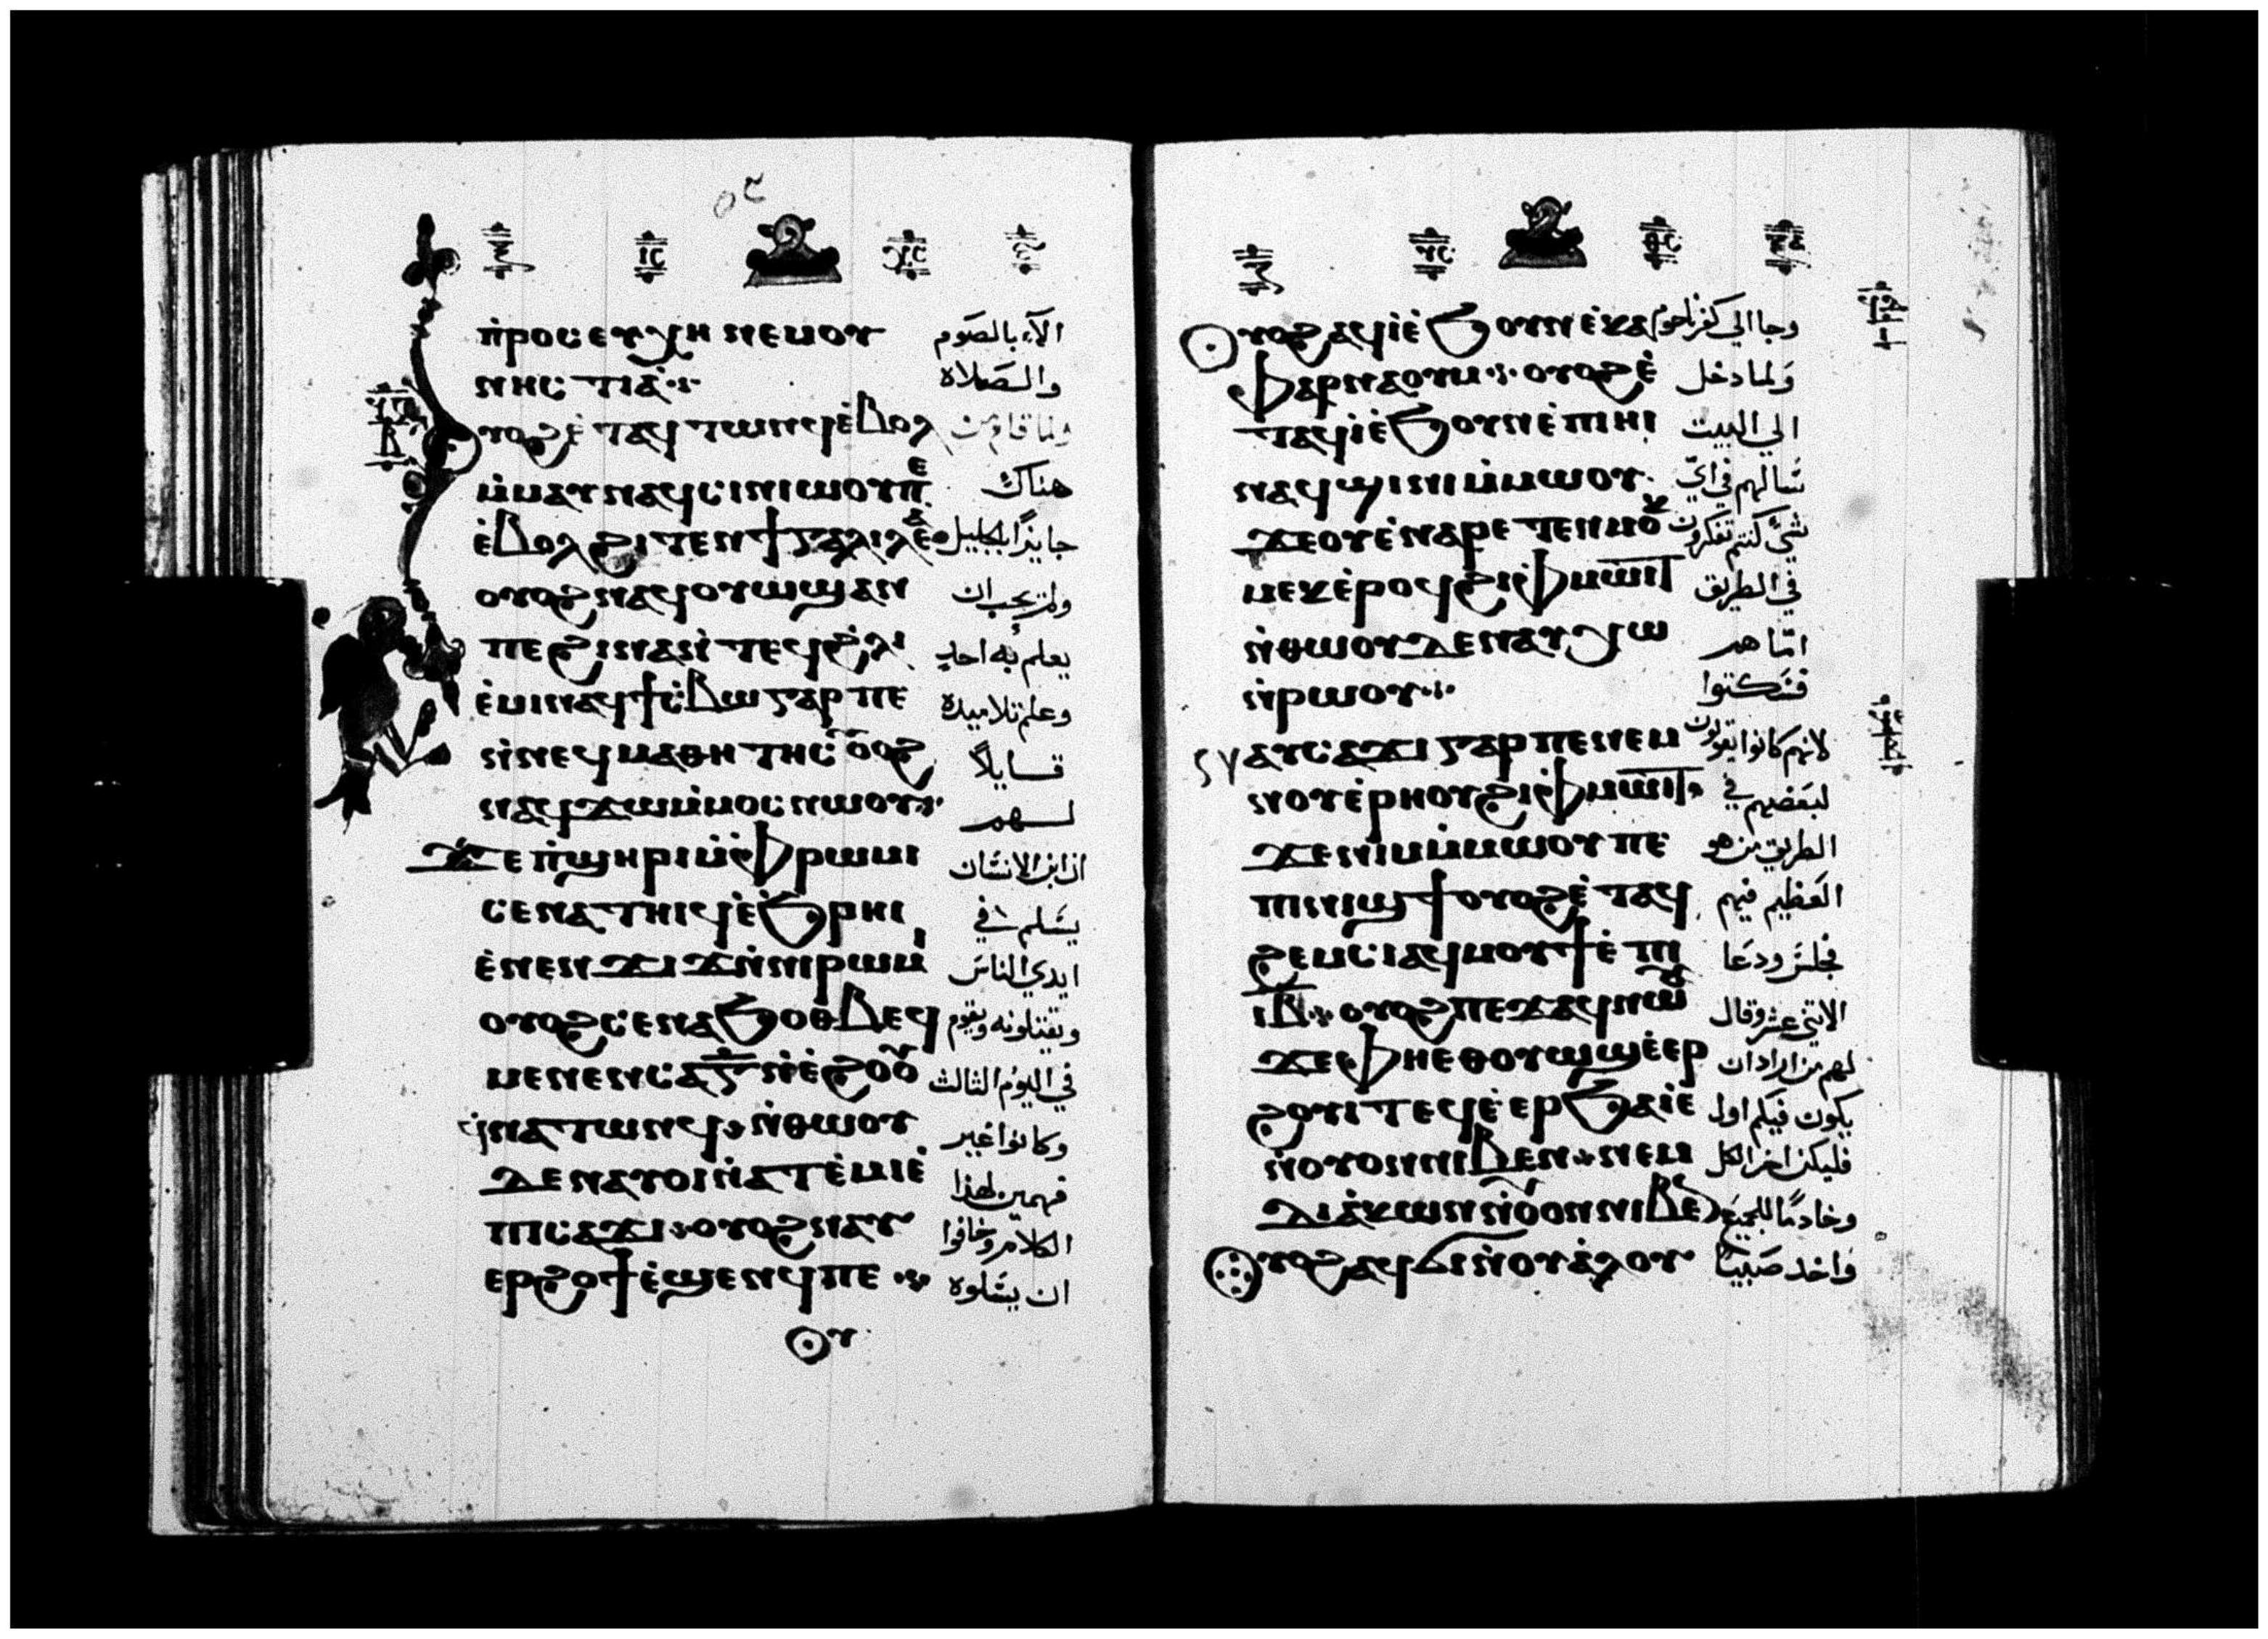 ⲡ̀ⲣⲟⲥⲉⲩⲭⲏ ⲛⲉⲙⲟⲩ الا بالصوم
ⲛⲏⲥⲧⲓⲁ̀ والصلاة
ⲟⲩⲟϩ ⲉ̀ⲧⲁϥⲧⲱⲛϥ ⲉ̀ⲃⲟⲗ ولما قام من
ⲙ̀ⲙⲁⲩ ⲛⲁϥⲥⲓⲛⲓⲱⲟⲩ ⲡⲉ هناك
ⲉ̀ⲃⲟⲗϩⲓⲧⲉⲛ ϯⲅⲁⲗⲓⲗⲉⲁ̀ جايزًا بالجليل
ⲟⲩⲟϩ ⲛⲁϥⲟⲩⲱϣ ⲁⲛ ولم يحب ان
ⲡⲉ ϩⲓⲛⲁ ⲛ̀ⲧⲉϥϩ̀ⲗⲓ يعلم به احد
ⲉ̀ⲙⲓ ⲛⲁϥϯⲥ̀ⲃⲱ ⲅⲁⲣ ⲡⲉ وعلم تلاميده
ⲛ̀ⲛⲉϥⲙⲁⲑⲏⲧⲏⲥ ⲟⲩⲟϩ قايلاً
ⲛⲁϥϫⲱ ⲙ̀ⲙⲟⲥ ⲛⲱⲟⲩ لهم
ϫⲉ ⲡ̀ϣⲏⲣⲓ ⲙ̀ⲫ̀ⲣⲱⲙⲓ ان ابن الانسان
ⲥⲉⲛⲁⲧⲏⲓϥ ⲉ̀ϧ̀ⲣⲏⲓ يسلم في
ⲉ̀ⲛⲉⲛϫⲓϫ ⲛ̀ⲛⲓⲣⲱⲙⲓ ايدي الناس
ⲟⲩⲟϩ ⲥⲉⲛⲁϧⲟⲑⲃⲉϥ ويقتلونه ويقوم
ⲙⲉⲛⲉⲛⲥⲁ ⲅ̅ ⲛ̀ⲉ̀ϩⲟⲟⲩ في اليوم الثالث
ϥ̀ⲛⲁⲧⲱⲛϥ ⲛ̀ⲑⲱⲟⲩ وكانوا غير
ⲇⲉ ⲛⲁⲩⲟⲓ ⲛ̀ⲁⲧⲉ̀ⲙⲓ ⲉ̀ فهمين لهذا
ⲡⲓⲥⲁϫⲓ ⲟⲩⲟϩ ⲛⲁⲩ الكلام وخافوا
ⲉⲣϩⲟϯ ⲉ̀ϣⲉⲛϥ ⲡⲉ ان يسلوه
ⲟⲩ
ⲟⲩⲟϩ ⲁϥⲓ̀ ⲉ̀ϧⲟⲩⲛ ⲉ̀ⲕⲁ وجا الي كفرناحوم
ⲫⲁⲣⲛⲁⲟⲩⲙ ⲟⲩⲟϩ ⲉ̀ ولما دخل
ⲧⲁϥⲓ̀ ⲉ̀ϧⲟⲩⲛ ⲉ̀ⲡⲓⲏⲓ الي البيت
ⲛⲁϥϣⲓⲛⲓ ⲙ̀ⲙⲱⲟⲩ سالهم في اي
ϫⲉ ⲟⲩ ⲉ̀ⲛⲁⲣⲉⲧⲉⲛⲙⲟⲕ شي كنتم تفكرون
ⲙⲉⲕ ⲉ̀ⲣⲟϥ ϩⲓ ⲫ̀ⲙⲱⲓⲧ في الطريق
ⲛ̀ⲑⲱⲟⲩ ⲇⲉ ⲛⲁⲩⲭⲱ اما هم
ⲛ̀ⲣⲱⲟⲩ فسكتوا
ⲁⲩⲥⲁϫⲓ ⲅⲁⲣ ⲡⲉ ⲛⲉⲙ لانهم كانوا يقولون
ⲛⲟⲩⲉ̀ⲣⲏⲟⲩ ϩⲓ ⲫ̀ⲙⲱⲓⲧ لبعضهم في
ϫⲉ ⲛⲓⲙ ⲙ̀ⲙⲱⲟⲩ ⲡⲉ الطريق من هو
ⲡⲓⲛⲓϣϯ ⲟⲩⲟϩ ⲉ̀ⲧⲁϥ العظيم فيهم
ϩⲉⲙⲥⲓ ⲁϥⲙⲟⲩϯ ⲉ̀ⲡⲓ فجلس ودعا
ⲓ̅ⲃ̅ ⲟⲩⲟϩ ⲡⲉϫⲁϥ ⲛⲱⲟⲩ الاثني عشر وقال
ϫⲉ ⲫⲏⲉⲑⲟⲩⲱϣ ⲉ̀ⲉⲣ لهم من اراد ان
ϩⲟⲩⲓⲧ ⲉϥⲉ̀ⲉⲣϧⲁⲓⲉ̀ يكون فيكم اول
ⲛ̀ⲟⲩⲟⲛ ⲛⲓⲃⲉⲛ ⲛⲉⲙ فليكن اخر الكل
ⲇⲓⲁ̀ⲕⲱⲛ ⲛ̀ⲟⲩⲟⲛ ⲛⲓⲃⲉⲛ وخادمًا للجميع
ⲟⲩⲟϩ ⲁϥϭⲓ ⲛ̀ⲟⲩⲁ̀ⲗⲟⲩ واخد صبيًا